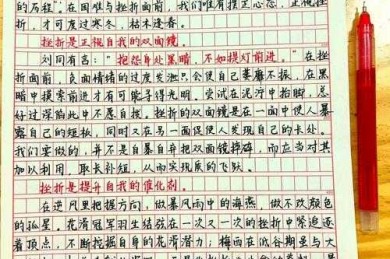 的历程"。在困难与挫折面前，我们唯有摆正心态，正视挫
折，才可度过寒冬，枯木逢春。
挫折是正视自我的双面镜。
刘同有言："抱怨身处黑暗，不如提灯前进。"在挫
折面前，负面情绪的过度发泄只会使自己萎靡不振，在黑
暗中摸索前进才有可能寻得光明。尝试在泥泞中抬脚，总
好过深陷此中不愿自拔。挫折的双面镜是在一面中使人暴
露自己的短板，同时又在另一面促使人发现自己的长处。
我们要做的，并不是自暴自弃把双面镜摔碎，而应当对其
加以利用，取长补短，从而实现质的飞跃。
挫折是提升自我的催化剂。
在逆风里把握方向，做暴风雨中的海燕，做不改颜色
的孤星。花滑冠军羽生结弦在一次又一次的挫折中紧追还
着顶点，不断挖掘自身的花滑潜力；梅西在低谷期里与大